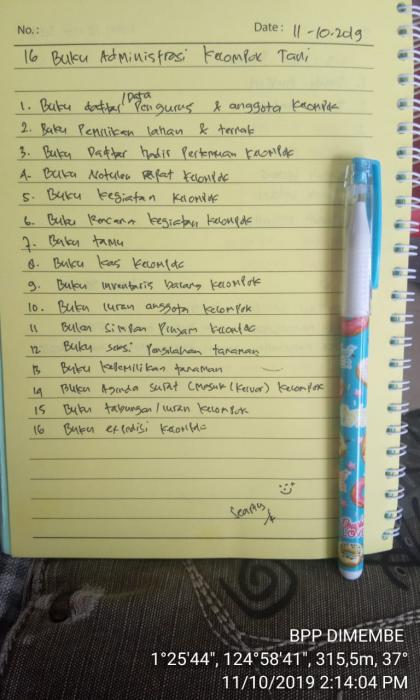 No.: Date: 11-10.2019
16 Buku Administrasi Kelompok Tani
1. Buku daftar/Data Pengurus & anggota Kelompok
2. Buku Pemilikan lahan & ternak
3. Buku Daftar hadir Pertemuan Kelompok
4. Buku Notulen Rapat Kelompok
5. Buku kegiatan Kelompok
6. Buku Rencana kegiatan Kelompok
7. Buku tamu
8. Buku kas Kelompok
9. Buku inventaris barang Kelompok
10. Buku iuran anggota Kelompok
11 Bulan Simpan Pinjam Kelompok
12 Buku Pengolahan tanaman
13 Buku kepemilikan tanaman
14 Buku Agenda Surat (Masuk/(Keluar) Kelompok
15 Buku tabungan/iuran Kelompok
16 Buku expedisi Kelompok
BPP DIMEMBE
1°25'44", 124°58'41", 315,5m, 37°
11/10/2019 2:14:04 PM